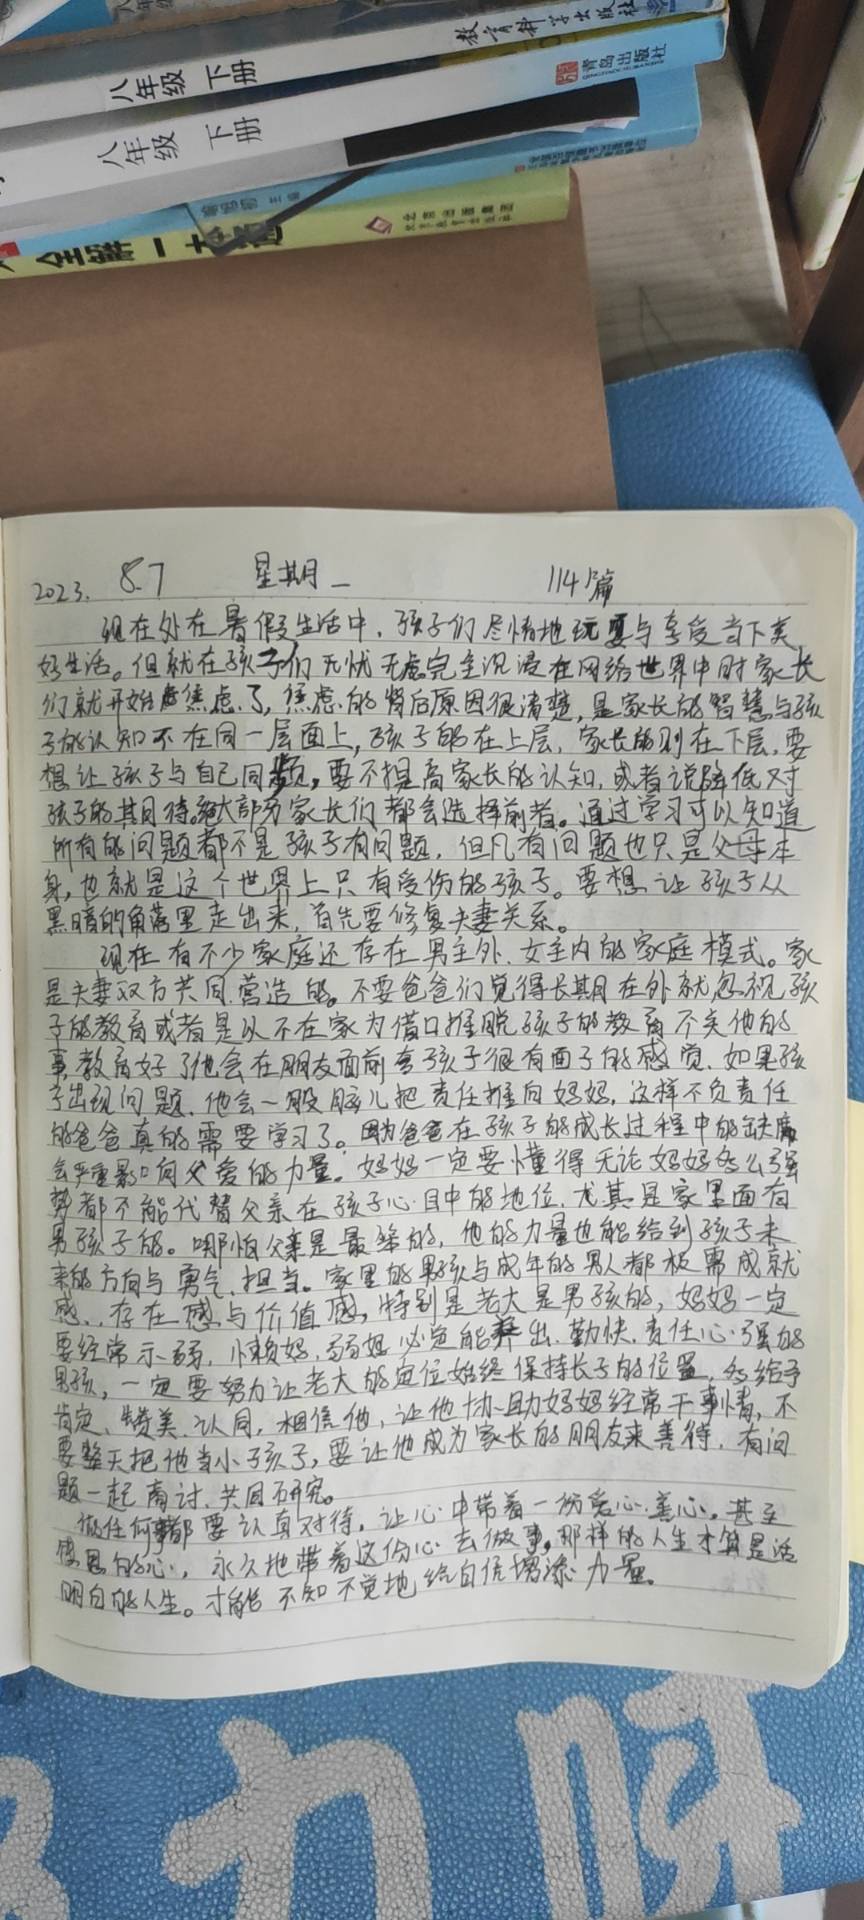 教育科学出版社
八年级 下册
青岛出版社
八年级 下册
主编
全解一本通
2023. 8.7 星期一 114篇
现在外在暑假生活中，孩子们尽情地玩耍与享受当下美
好生活。但就在孩子们无忧无虑完全沉浸在网络世界中时家长
们就开始焦虑了，焦虑的背后原因很清楚，是家长的智慧与孩
子的认知不在同一层面上，孩子的在上层，家长的则在下层，要
想让孩子与自己同频，要不提高家长的认知，或者说降低对
孩子的其月待。绝大部分家长们都会选择前者。通过学习可以知道
所有的问题都不是孩子有问题，但凡有问题也只是父母本
身，也就是这个世界上只有受伤的孩子。要想让孩子从
黑暗的角落里走出来，首先要修复夫妻关系。
现在有不少家庭还存在男主外、女主内的家庭模式。家
是夫妻双方共同营造的。不要爸爸们觉得长期在外就忽视孩
子的教育或者是以不在家为借口推脱孩子的教育不关他的
事，教育好了他会在朋友面前夸孩子很有面子的感觉，如果孩
子出现问题，他会一股脑儿把责任推向妈妈，这样不负责任
的爸爸真的需要学习了。因为爸爸在孩子的成长过程中的缺席
会严重影响父爱的力量。妈妈一定要懂得无论妈妈多么强
势都不能代替父亲在孩子心目中的地位，尤其是家里面有
男孩子的。哪怕父亲是最笨的，他的力量也能给到孩子未
来的方向与勇气、担当。家里的男孩与成年的男人都极需成就
感、存在感与价值感，特别是老大是男孩的，妈妈一定
要经常示弱，懒妈、弱妈必定能养出勤快、责任心强的
男孩，一定要努力让老大的定位始终保持长子的位置，多给予
肯定、赞美、认同，相信他，让他协助妈妈经常干事情，不
要整天把他当小孩子，要让他成为家长的朋友来善待，有问
题一起商讨、共同研究。
做任何事都要认真对待，让心中带着一份爱心、善心。甚至
感恩的心，永久地带着这份心去做事，那样的人生才算是活
明白的人生。才能不知不觉地给自信增添力量。